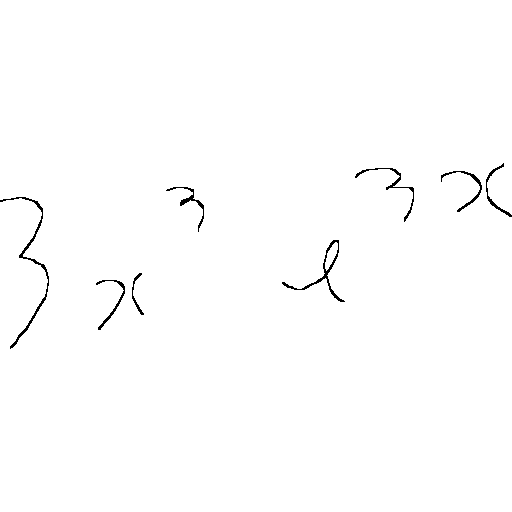 3x³e³ˣ